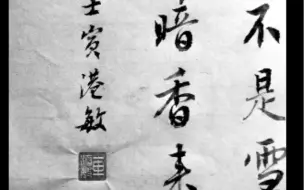 不是雪
暗香来
壬寅港敏